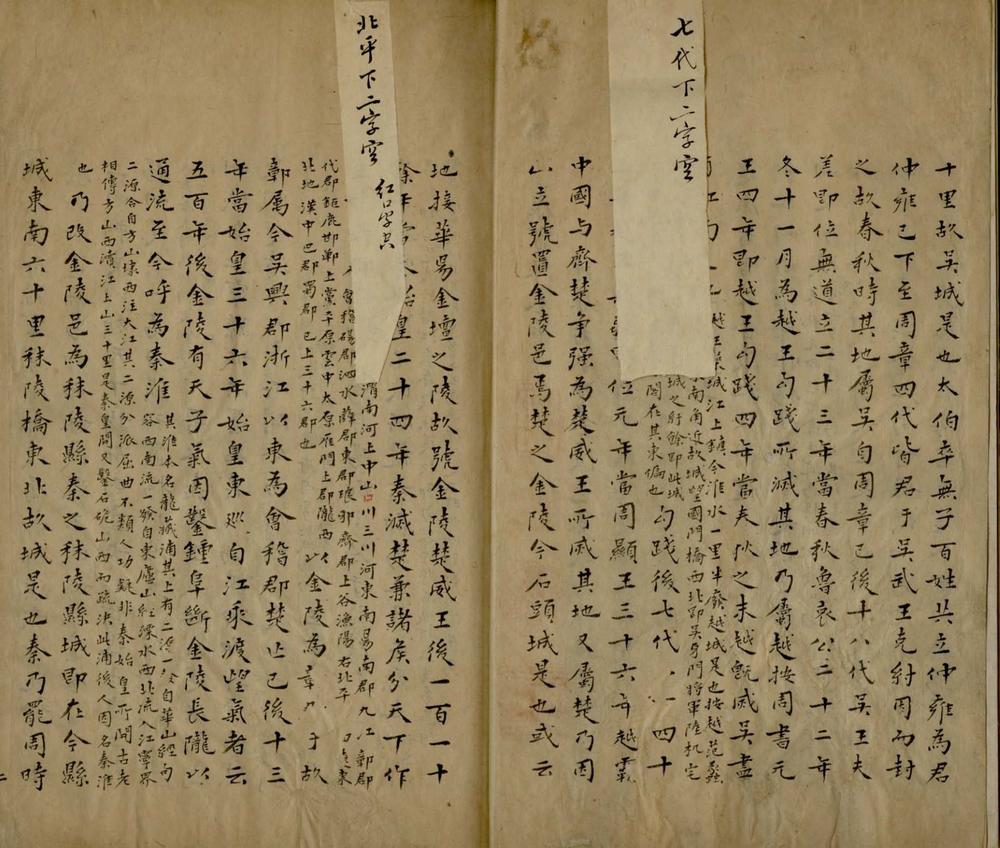 七代下二字空
十里故吴城是也太伯卒無子百姓共立仲雍為君
仲雍已下至周章四代皆君于吴武王克紂因而封
之故春秋時其地屬吴自周章已後十八代吴王夫
差即位無道立二十三年當春秋魯哀公二十二年
冬十一月為越王勾踐所滅其地乃屬越按周書元
王四年即越王勾踐四年當夫
之末越既滅吴盡
越王築城江上鎮今淮水一里半廢越城是也按越范蠡
南角近故城望國門橋西北即吴
門將軍陸机宅
在其東偏也
勾踐後七代
一四十
位元年當周顯王三十六年越霸
中國与齊楚争强為楚威王所滅其地又屬楚乃因
山立號置金陵邑焉楚之金陵今石頭城是也或云
北平下二字空
紅口字只
地接華昜金壇之陵故號金陵楚威王後一百一十
餘年當
始皇二十四年秦滅楚兼諸侯分天下作
渭南河上中山
川三川河東南昜南郡九江鄣郡
會稽碭郡泗水薛郡東郡琅邪齊郡上谷漁陽右北平
代郡鉅鹿邯鄲上黨平原雲中太原雁門上郡隴西
北地漢中巴郡蜀郡已上三十六郡也
以金陵為
于故
鄣屬今吴興郡浙江以東為會稽郡楚亡已後十三
年當始皇三十六年始皇東巡自江乘渡望氣者云
五百年後金陵有天子氣因鑿鍾阜斷金陵長隴以
通流至今呼為秦淮
其淮本名龍藏浦其上有二源一
自華山經句
容西南流一發自東廬山經溧水西北流入江寧界
二源合自方山埭西注大江其二源分派屈曲不類人功疑非秦始皇所開古老
相傳方山西瀆江上山三十里是秦皇開又鑿石
山西而疏決此浦後人因名秦淮
也
乃改金陵邑為秣陵縣秦之秣陵縣城即在今縣
城東南六十里秣陵橋東北故城是也秦乃罷周時